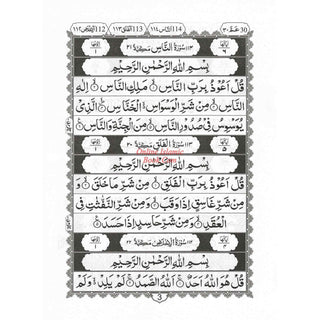 الاخلاص ١١٢ 112 الفلق ١١٣ 113 الناس ١١٤ 114 عم ٣٠ 30
سورة الناس مكية ٢١
بِسْمِ اللهِ الرَّحْمٰنِ الرَّحِيْمِ
قُلْ اَعُوْذُ بِرَبِّ النَّاسِ ۙ مَلِكِ النَّاسِ ۙ اِلٰهِ
النَّاسِ ۙ مِنْ شَرِّ الْوَسْوَاسِ ۙ الْخَنَّاسِ ۙ الَّذِيْ
يُوَسْوِسُ فِيْ صُدُوْرِ النَّاسِ ۙ مِنَ الْجِنَّةِ وَالنَّاسِ
سورة الفلق مكية ٢٠
Online Islamic
Book.Com
بِسْمِ اللهِ الرَّحْمٰنِ الرَّحِيْمِ
قُلْ اَعُوْذُ بِرَبِّ الْفَلَقِ ۙ مِنْ شَرِّ مَا خَلَقَ ۙ وَ
مِنْ شَرِّ غَاسِقٍ اِذَا وَقَبَ ۙ وَمِنْ شَرِّ النَّفّٰثٰتِ فِي
الْعُقَدِ ۙ وَمِنْ شَرِّ حَاسِدٍ اِذَا حَسَدَ
سورة الاخلاص مكية ٢٢
بِسْمِ اللهِ الرَّحْمٰنِ الرَّحِيْمِ
قُلْ هُوَ اللهُ اَحَدٌ ۚ اَللهُ الصَّمَدُ ۚ لَمْ يَلِدْ ۙ وَلَمْ
3